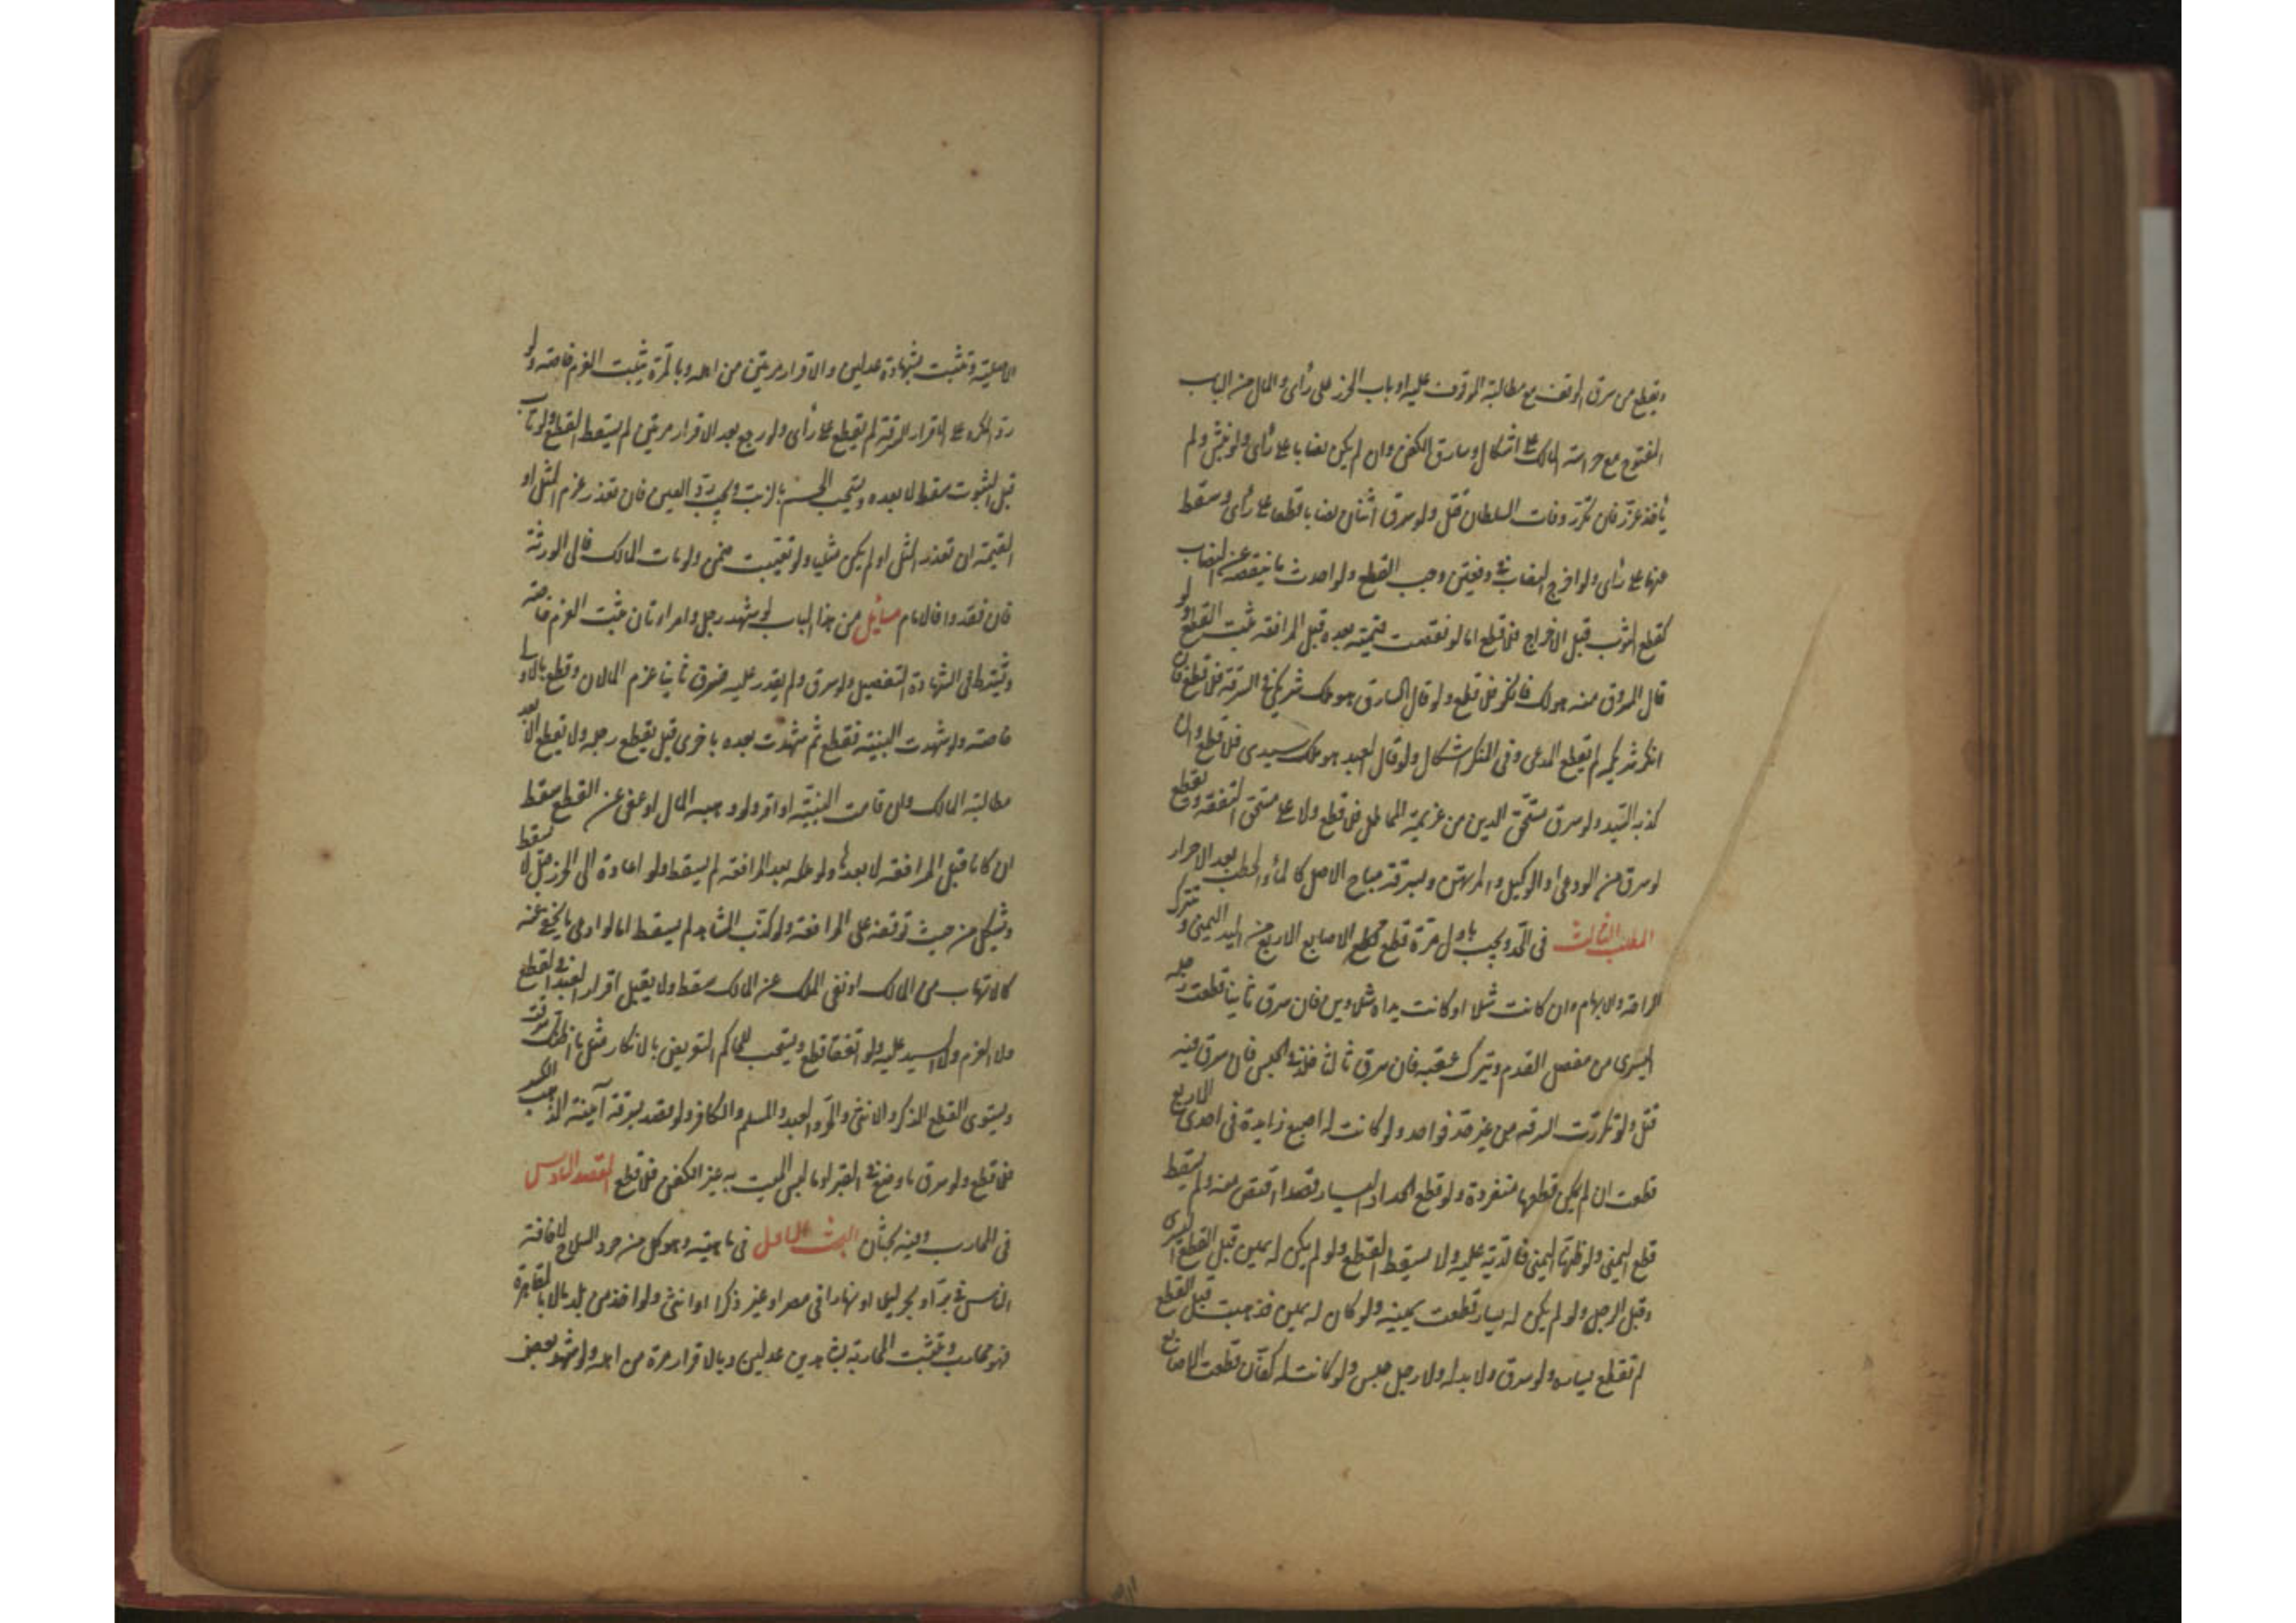 ويقطع من سرق الوقف مع مطالبة الموقوف عليه او باب الحرز على رأى والمال من الباب
المفتوح مع حراسة المالك على اشكال وسارق الكفن وان لم يكن نصابا على رأى ولو نبش ولم
يأخذ عزّر فان تكرّر وفات السلطان قتل ولو سرق اثنان نصابا قطعا على رأى وسقط
عنهما على رأى ولو اخرج النصاب فى دفعتين وجب القطع ولو احدث ما ينقصه عن النصاب
كقطع الثوب قبل الاخراج فلا قطع اما لو نقصت قيمته بعده قبل المرافعة ثبت القطع ولو
قال المسروق منه هو لك فانكر فلا قطع ولو قال السارق هو ملك شريكى فى السرقة فلا قطع فان
انكر شريكه لم يقطع المدعى وفى المنكر اشكال ولو قال العبد هو ملك سيدى فلا قطع وان
كذبه السيّد ولو سرق مستحق الدين من غريمه المماطل فلا قطع ولا على مستحق النفقة ويقطع
لو سرق من الودعى او الوكيل والمرتهن وبسرقة مباح الاصل كالماء والحطب بعد الاحراز
المطلب الثالث فى الحّد ويجب باول مرّة قطع الاصابع الاربع من اليد اليمنى ويترك
الراحة والابهام وان كانت شلاء او كانت يداه شلاوين فان سرق ثانيا قطعت رجله
اليسرى من مفصل القدم ويترك عقبه فان سرق ثالثا خلّد فى الحبس فان سرق فيه
قتل ولو تكررت السرقة من غير حدّ فواحد ولو كانت له اصبع زايدة فى احدى الاربع
قطعت ان لم يمكن قطعها منفردة ولو قطع الحداد اليسار قصدا اقتص منه ولم يسقط
قطع اليمنى ولو ظنّها اليمنى فالدّية عليه ولا يسقط القطع ولو لم يكن له يمين قبل القطع اليسرى
وقيل الرجل ولو لم يكن له يسار قطعت يمينه ولو كان له يمين فذهبت قبل القطع
لم تقطع يساره ولو سرق ولا يد له ولا رجل حبس ولو كانت له كفّان قطعت الاصابع
الاصلية وتثبت بشهادة عدلين والاقرار مرتين من اهله وبالمّرة يثبت الغرم خاصة ولو
ردّ المكره على الاقرار السرقة لم يقطع على رأى ولو رجع بعد الاقرار مرتين لم يسقط القطع ولو تاب
قبل الثبوت سقط لا بعده ويستحب الحسم بالزيت ويجب ردّ العين فان تعذر غرم المثل او
القيمة ان تعذر المثل او لم يكن مثليا ولو تعيبت ضمن ولو مات المالك فالى الورثة
فان فقدوا فالامام مسائل من هذا الباب لو شهد رجل وامراتان ثبت الغرم خاصة
ويشترط فى الشهادة التفصيل ولو سرق ولم يقدر عليه فسرق ثانيا غرم المالان وقطع بالاولى
خاصة ولو شهدت البينة فقطع ثم شهدت بعده باخرى قيل يقطع رجله ولا يقطع الا بعد
مطالبة المالك وان قامت البينة او اقر ولو وهبه المال او عفى عن القطع سقط
ان كانا قبل المرافعة لا بعدها ولو ملكه بعد المرافعة لم يسقط ولو اعاده الى الحرز قيل لا يسقط
ويشكل من حيث توقفه على المرافعة ولو كذّب الشاهد لم يسقط اما لو ادعى ما يخفى عنه
كالاتهاب من المالك او نفى الملك عن المالك سقط ولا يقبل اقرار العبد فى القطع
ولا الغرم ولا السيد عليه ولو اتفقا قطع ويستحب للحاكم التعريض بالانكار مثل ما اظنك سرقت
ويستوى القطع الذكر والانثى والحّر والعبد والمسلم والكافر ولو قصد بسرقة آنية الذهب الكسر
فلا قطع ولو سرق ما وضع فى القبر او ما لبس الميت به غير الكفن فلا قطع المقصد السادس
فى المحارب وفيه بحثان البحث الاول فى ماهيته وهو كل من جرد السلاح لاخافة
الناس فى برّ او بحر ليلا او نهارا فى مصر او غيره ذكرا او انثى ولو اخذ من بلد مالا بالمقاهرة
فهو محارب وتثبت المحاربة بشاهدين عدلين وبالاقرار مرة من اهله ولو شهد بعض